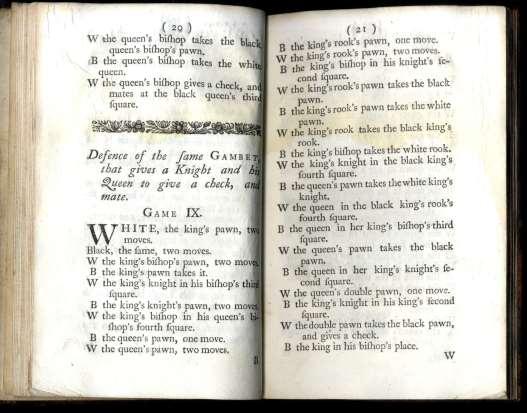 ( 20 )
W the queen's bishop takes the black
queen's bishop's pawn.
B the queen's bishop takes the white
queen.
W the queen's bishop gives a check, and
mates at the black queen's third
square.
Defence of the same GAMBET,
that gives a Knight and his
Queen to give a check, and
mate.
GAME IX.
WHITE, the king's pawn, two
moves.
Black, the same, two moves.
W the king's bishop's pawn, two moves.
B the king's pawn takes it.
W the king's knight in his bishop's third
square.
B the king's knight's pawn, two moves.
W the king's bishop in his queen's bi-
shop's fourth square.
B the queen's pawn, one move.
W the queen's pawn, two moves.
( 21 )
B the king's rook's pawn, one move.
W the king's rook's pawn, two moves.
B the king's bishop in his knight's se-
cond square.
W the king's rook's pawn takes the black
pawn.
B the king's rook's pawn takes the white
pawn.
W the king's rook takes the black king's
rook.
B the king's bishop takes the white rook.
W the king's knight in the black king's
fourth square.
B the queen's pawn takes the white king's
knight.
W the queen in the black king's rook's
fourth square.
B the queen in her king's bishop's third
square.
W the queen's pawn takes the black
pawn.
B the queen in her king's knight's se-
cond square.
W the queen's double pawn, one move.
B the king's knight in his king's second
square.
W the double pawn takes the black pawn,
and gives a check.
B the king in his bishop's place.
W